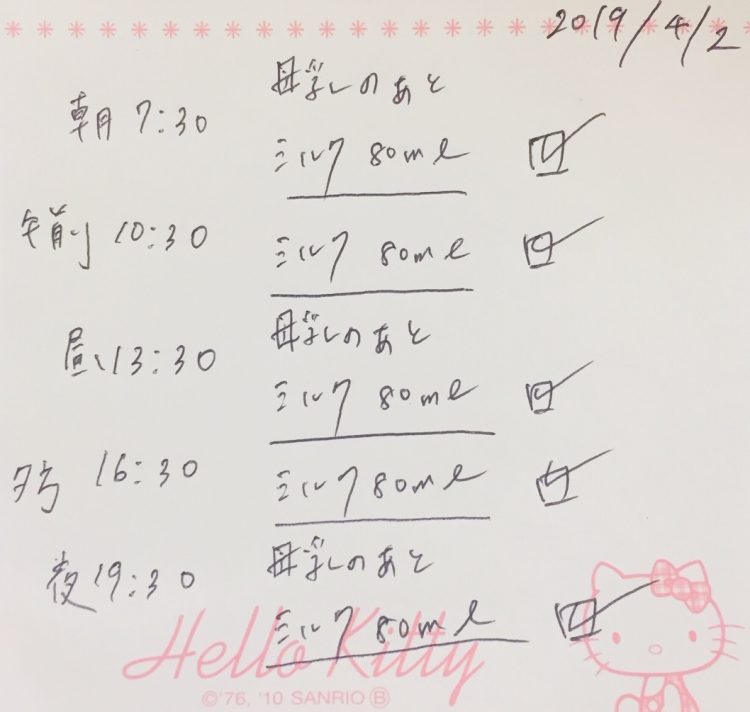 2019/4/2
母乳のあと
朝 7:30
ミルク 80ml ☑
午前 10:30 ミルク 80ml ☑
母乳のあと
昼 13:30
ミルク 80ml ☑
夕方 16:30 ミルク 80ml ☑
母乳のあと
夜 19:30
ミルク 80ml ☑
Hello Kitty
©'76, '10 SANRIO Ⓑ